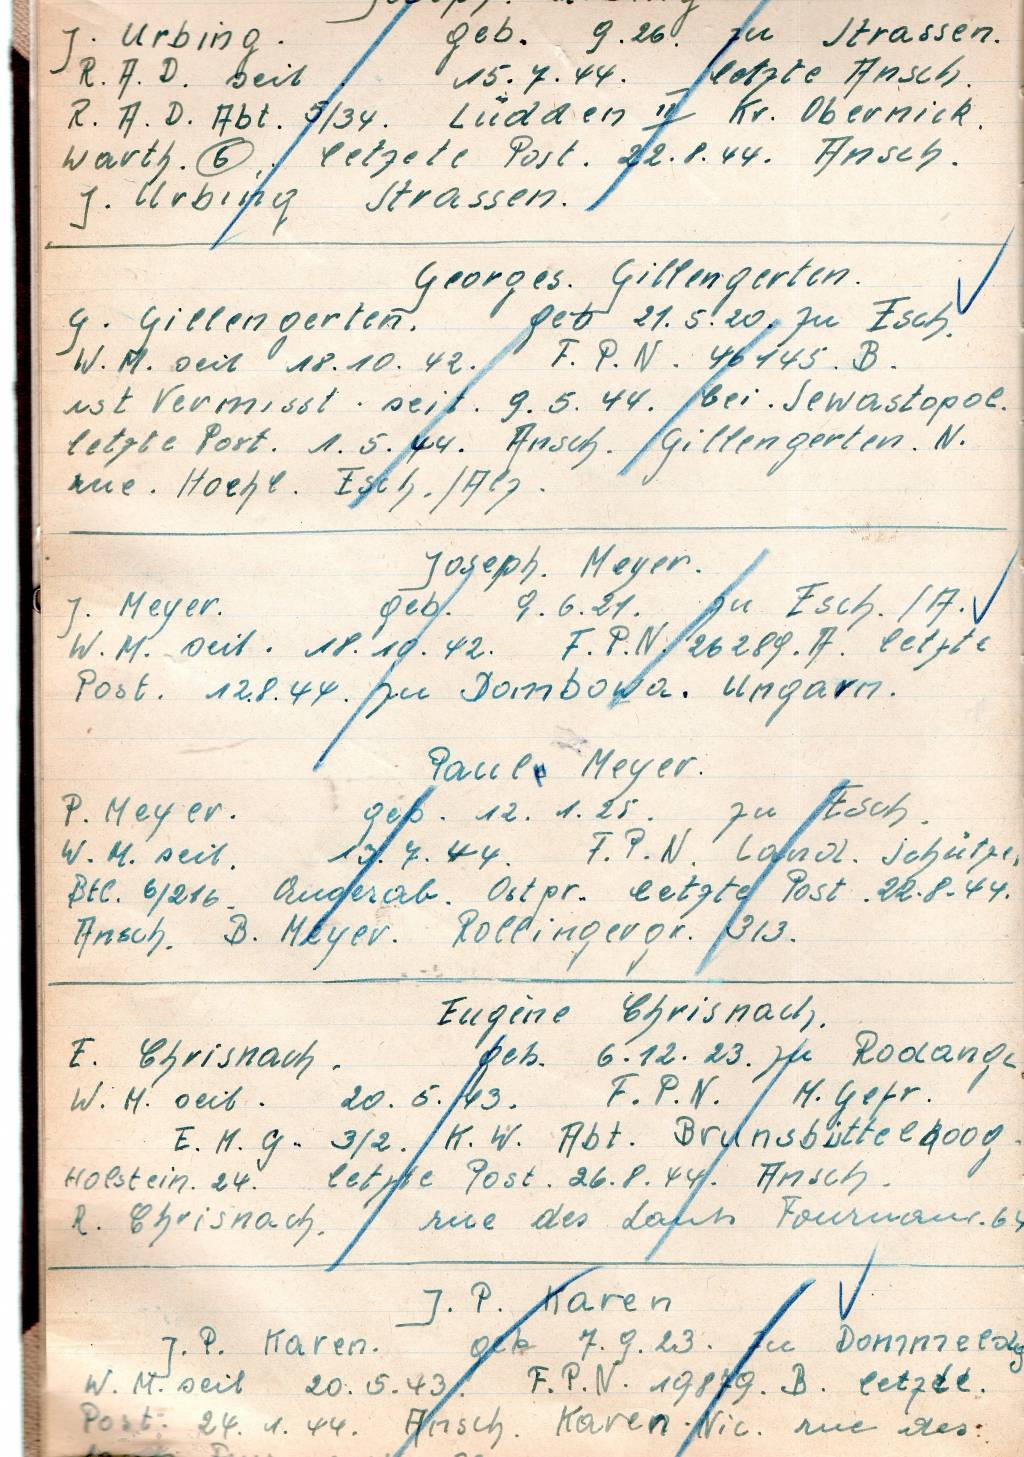 J. Urbing. geb. 9.26. zu Strassen.
R. A. D. seit 15.7.44. letzte Ansch.
R. A. D. Abt. 5/34. Lüdden II Kr. Obernick.
Warth. 6, letzete Post. 22.8.44. Ansch.
J. Urbing Strassen.
Georges. Gillengerten.
G. Gillengerten. geb 21.5.20. zu Esch.
W. M. seit 18.10.42. F. P. N. 46145. B.
ist Vermisst. seit. 9.5.44. bei. Sewastopol.
letzte Post. 1.5.44. Ansch. Gillengerten. N.
rue. Hoehl. Esch./Alz.
Joseph. Meyer.
J. Meyer. geb. 9.6.21. zu Esch./A.
W. M. seit. 18.10.42. F.P.N. 26289.A. letzte
Post. 12.8.44. zu Dombowa. Ungarn.
Paul Meyer.
P. Meyer. geb. 12.1.25. zu Esch.
W. M. seit. 13.7.44. F.P.N. Land. Schütze.
Btl. 6/216. Angerab. Ostpr. letzte Post 22.8.44.
Ansch. B. Meyer. Rollingergr. 313.
Eugène Chrisnach.
E. Chrisnach. geb. 6.12.23. zu Rodange
W. M. seit. 20.5.43. F. P. N. M. Gefr.
E. M. G. 3/2. K. W. Abt. Brunsbüttelkoog.
Holstein. 24. letzte Post. 26.8.44. Ansch.
R. Chrisnach. rue des 64
J. P. Karen
J. P. Karen. geb 7.9.23. zu Dommeldg
W. M. seit 20.5.43. F.P.N. 19879. B. letzte.
Post. 24.1.44. Ansch. Karen. Nic. rue des.